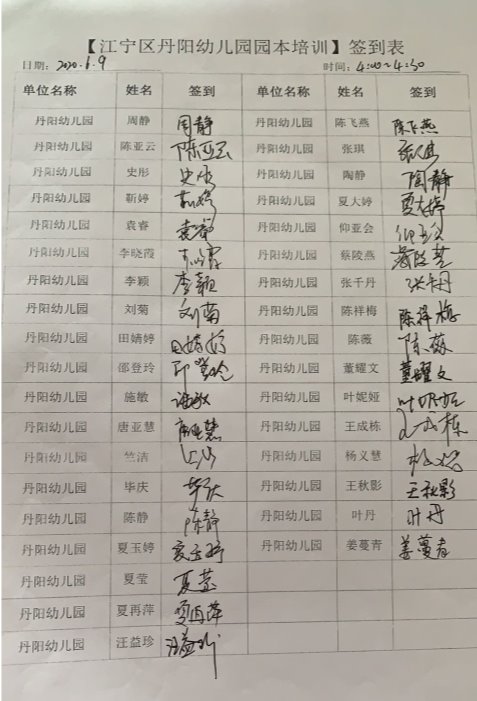 【江宁区丹阳幼儿园园本培训】签到表
日期：2020.6.9 时间：4:00~4:30
单位名称 姓名 签到 单位名称 姓名 签到
丹阳幼儿园 周静 周静 丹阳幼儿园 陈飞燕 陈飞燕
丹阳幼儿园 陈亚云 陈亚云 丹阳幼儿园 张琪 张琪
丹阳幼儿园 史彤 史彤 丹阳幼儿园 陶静 陶静
丹阳幼儿园 靳婷 靳婷 丹阳幼儿园 夏大婷 夏大婷
丹阳幼儿园 袁睿 袁睿 丹阳幼儿园 仰亚会 仰亚会
丹阳幼儿园 李晓霞 李晓霞 丹阳幼儿园 蔡陵燕
丹阳幼儿园 李颖 李颖 丹阳幼儿园 张千丹 张千丹
丹阳幼儿园 刘菊 刘菊 丹阳幼儿园 陈祥梅 陈祥梅
丹阳幼儿园 田婧婷 田婧婷 丹阳幼儿园 陈薇 陈薇
丹阳幼儿园 邵登玲 邵登玲 丹阳幼儿园 董耀文 董耀文
丹阳幼儿园 施敏 施敏 丹阳幼儿园 叶妮娅 叶妮娅
丹阳幼儿园 唐亚慧 唐亚慧 丹阳幼儿园 王成栋 王成栋
丹阳幼儿园 竺洁 丹阳幼儿园 杨义慧
丹阳幼儿园 毕庆 毕庆 丹阳幼儿园 王秋影 王秋影
丹阳幼儿园 陈静 陈静 丹阳幼儿园 叶丹 叶丹
丹阳幼儿园 夏玉婷 夏玉婷 丹阳幼儿园 姜蔓青 姜蔓青
丹阳幼儿园 夏莹 夏莹
丹阳幼儿园 夏再萍 夏再萍
丹阳幼儿园 汪益珍 汪益珍